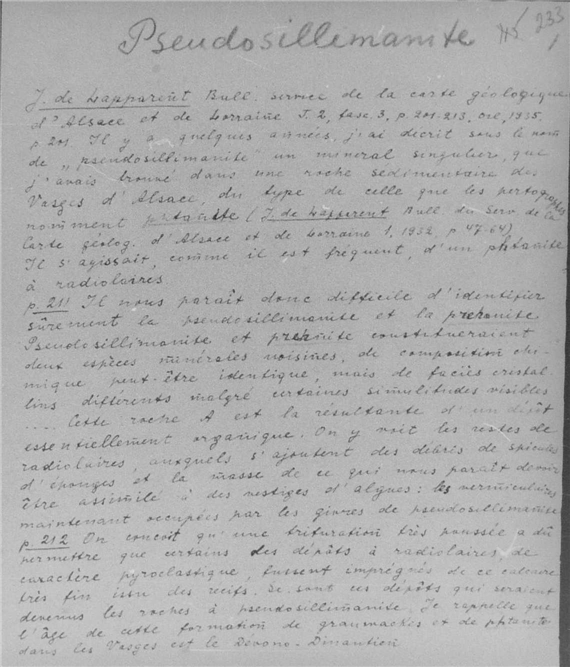 Pseudosillimanite
233
J. de Lapparent Bull. service de la carte géologique
d'Alsace et de Lorraine T. 2, fasc. 3, p. 201-213, 1935.
p. 201. Il y a quelques années, j'ai décrit sous le nom
de „pseudosillimanite" un mineral singulier, que
j'avais trouvé dans une roche sedimentaire des
Vosges d'Alsace, du type de celle que les petrographes
nomment phtanite (J. de Lapparent Bull. du Serv. de la
Carte géolog. d'Alsace et de Lorraine 1, 1932, p. 47-64)
Il s'agissait, comme il est fréquent, d'un phtanite
à radiolaires.
p. 211 Il nous paraît donc difficile d'identifier
sûrement la pseudosillimanite et la prehnite.
Pseudosillimanite et prehnite constitueraient
deux espèces minérales voisines, de composition chi-
mique peut-être identique, mais de faciès cristal-
lins différents malgré certaines similitudes visibles
.... Cette roche A est la resultante d'un dépôt
essentiellement organique. On y voit les restes de
radiolaires, auxquels s'ajoutent des débris de spicules
d'éponges et la masse de ce qui nous paraît devoir
être assimilé à des vestiges d'algues: les vermiculaires
maintenant occupées par les givres de pseudosillimanite
p. 212 On conçoit qu'une trituration très poussée a dû
permettre que certains des dépôts à radiolaires, de
caractère pyroclastique, fussent imprégnés de ce calcaire
très fin issu des recifs. Se sont ces dépôts qui seraient
devenus les roches à pseudosillimanite. Je rappelle que
l'âge de cette formation de grauwackes et de phtanites
dans les Vosges est le Dévono-Dinantien